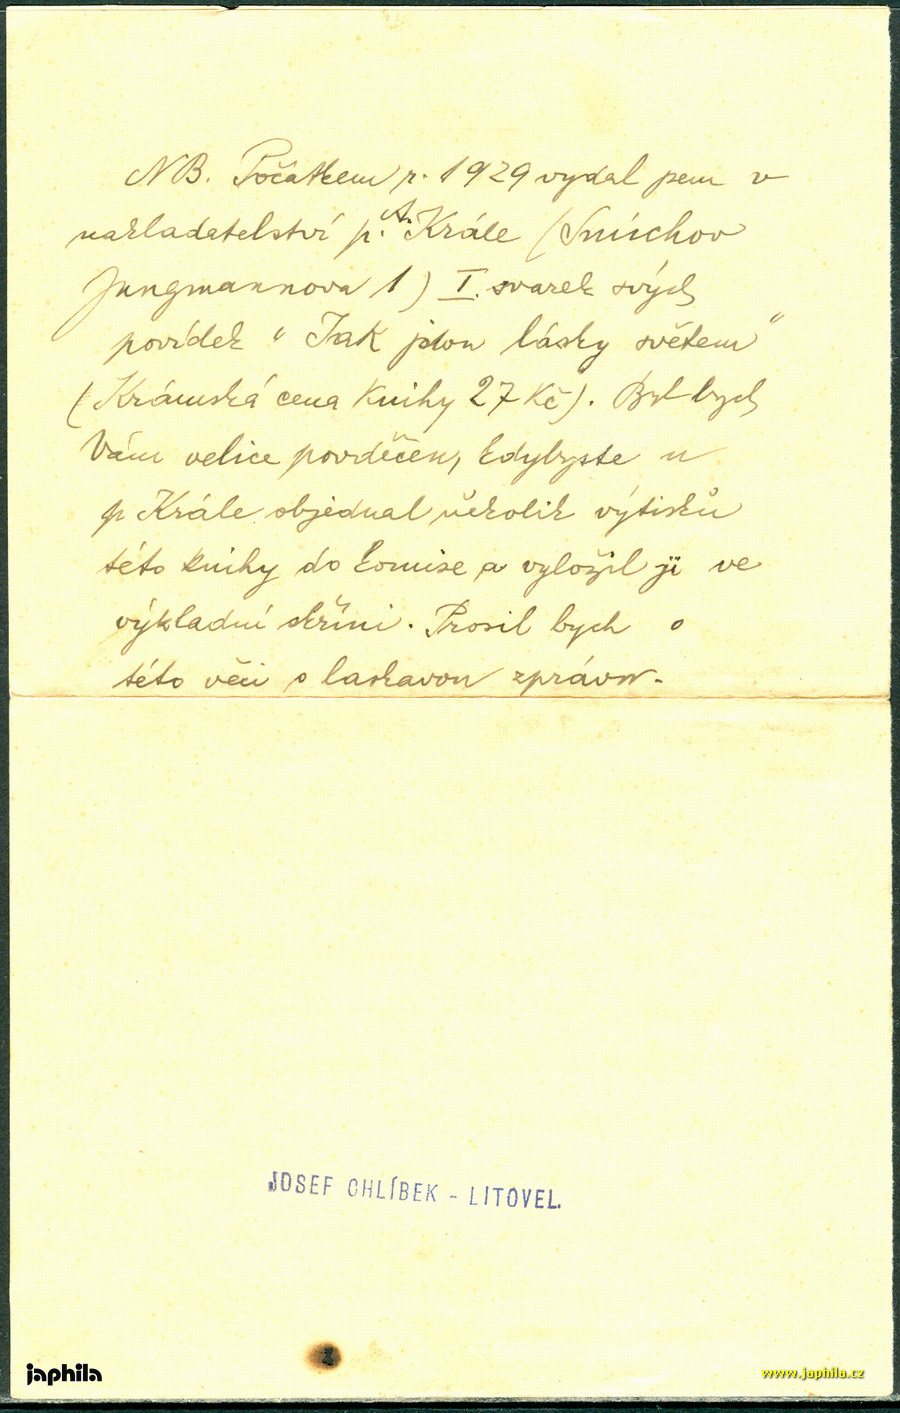 NB. Počátkem r. 1929 vydal jsem v
nakladatelství p. A. Krále (Smíchov
Jungmannova 1) I. svazek svých
povídek "Jak jdou lásky světem"
(Krámská cena knihy 27 Kč). Byl bych
Vám velice povděčen, kdybyste u
p Krále objednal několik výtisků
této knihy do komise a vyložil ji ve
výkladní skříni. Prosil bych o
této věci o laskavou zprávu.
JOSEF CHLÍBEK - LITOVEL.
japhila
www.japhila.cz